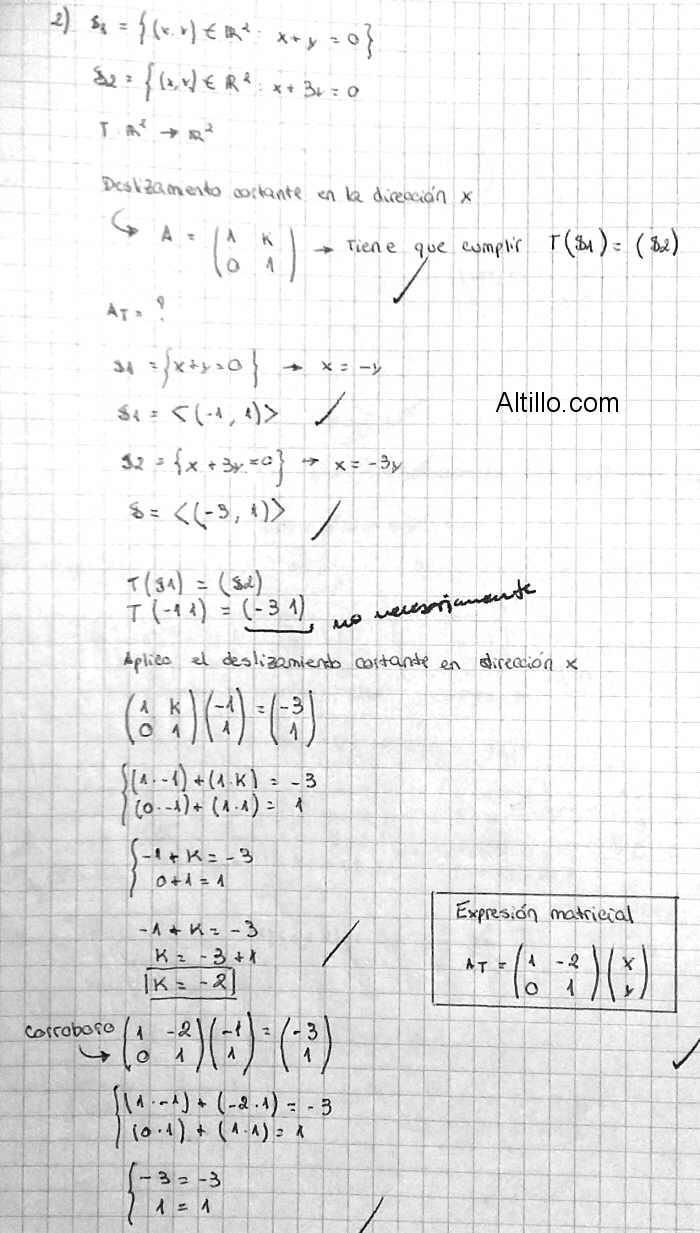 2) S1 = {(x,y) ∈ R² : x+y = 0}
S2 = {(x,y) ∈ R² : x+3y = 0
T R² → R²
Deslizamento cortante en la dirección x
A = (1 K; 0 1) → Tiene que cumplir T(S1) = (S2)
AT = ?
S1 = {x+y=0} → x = -y
S1 = <(-1, 1)>
Altillo.com
S2 = {x+3y=0} → x = -3y
S = <(-3, 1)>
T(S1) = (S2)
T(-1 1) = (-3 1) no necesariamente
Aplico el deslizamiento cortante en dirección x
(1 K; 0 1)(-1; 1) = (-3; 1)
{(1·-1)+(1·K) = -3
(0·-1)+(1·1) = 1
{-1+K = -3
0+1 = 1
-1+K = -3
K = -3+1
K = -2
Expresión matricial
AT = (1 -2; 0 1)(x; y)
Corroboro (1 -2; 0 1)(-1; 1) = (-3; 1)
{(1·-1)+(-2·1) = -3
(0·1)+(1·1) = 1
{-3 = -3
1 = 1